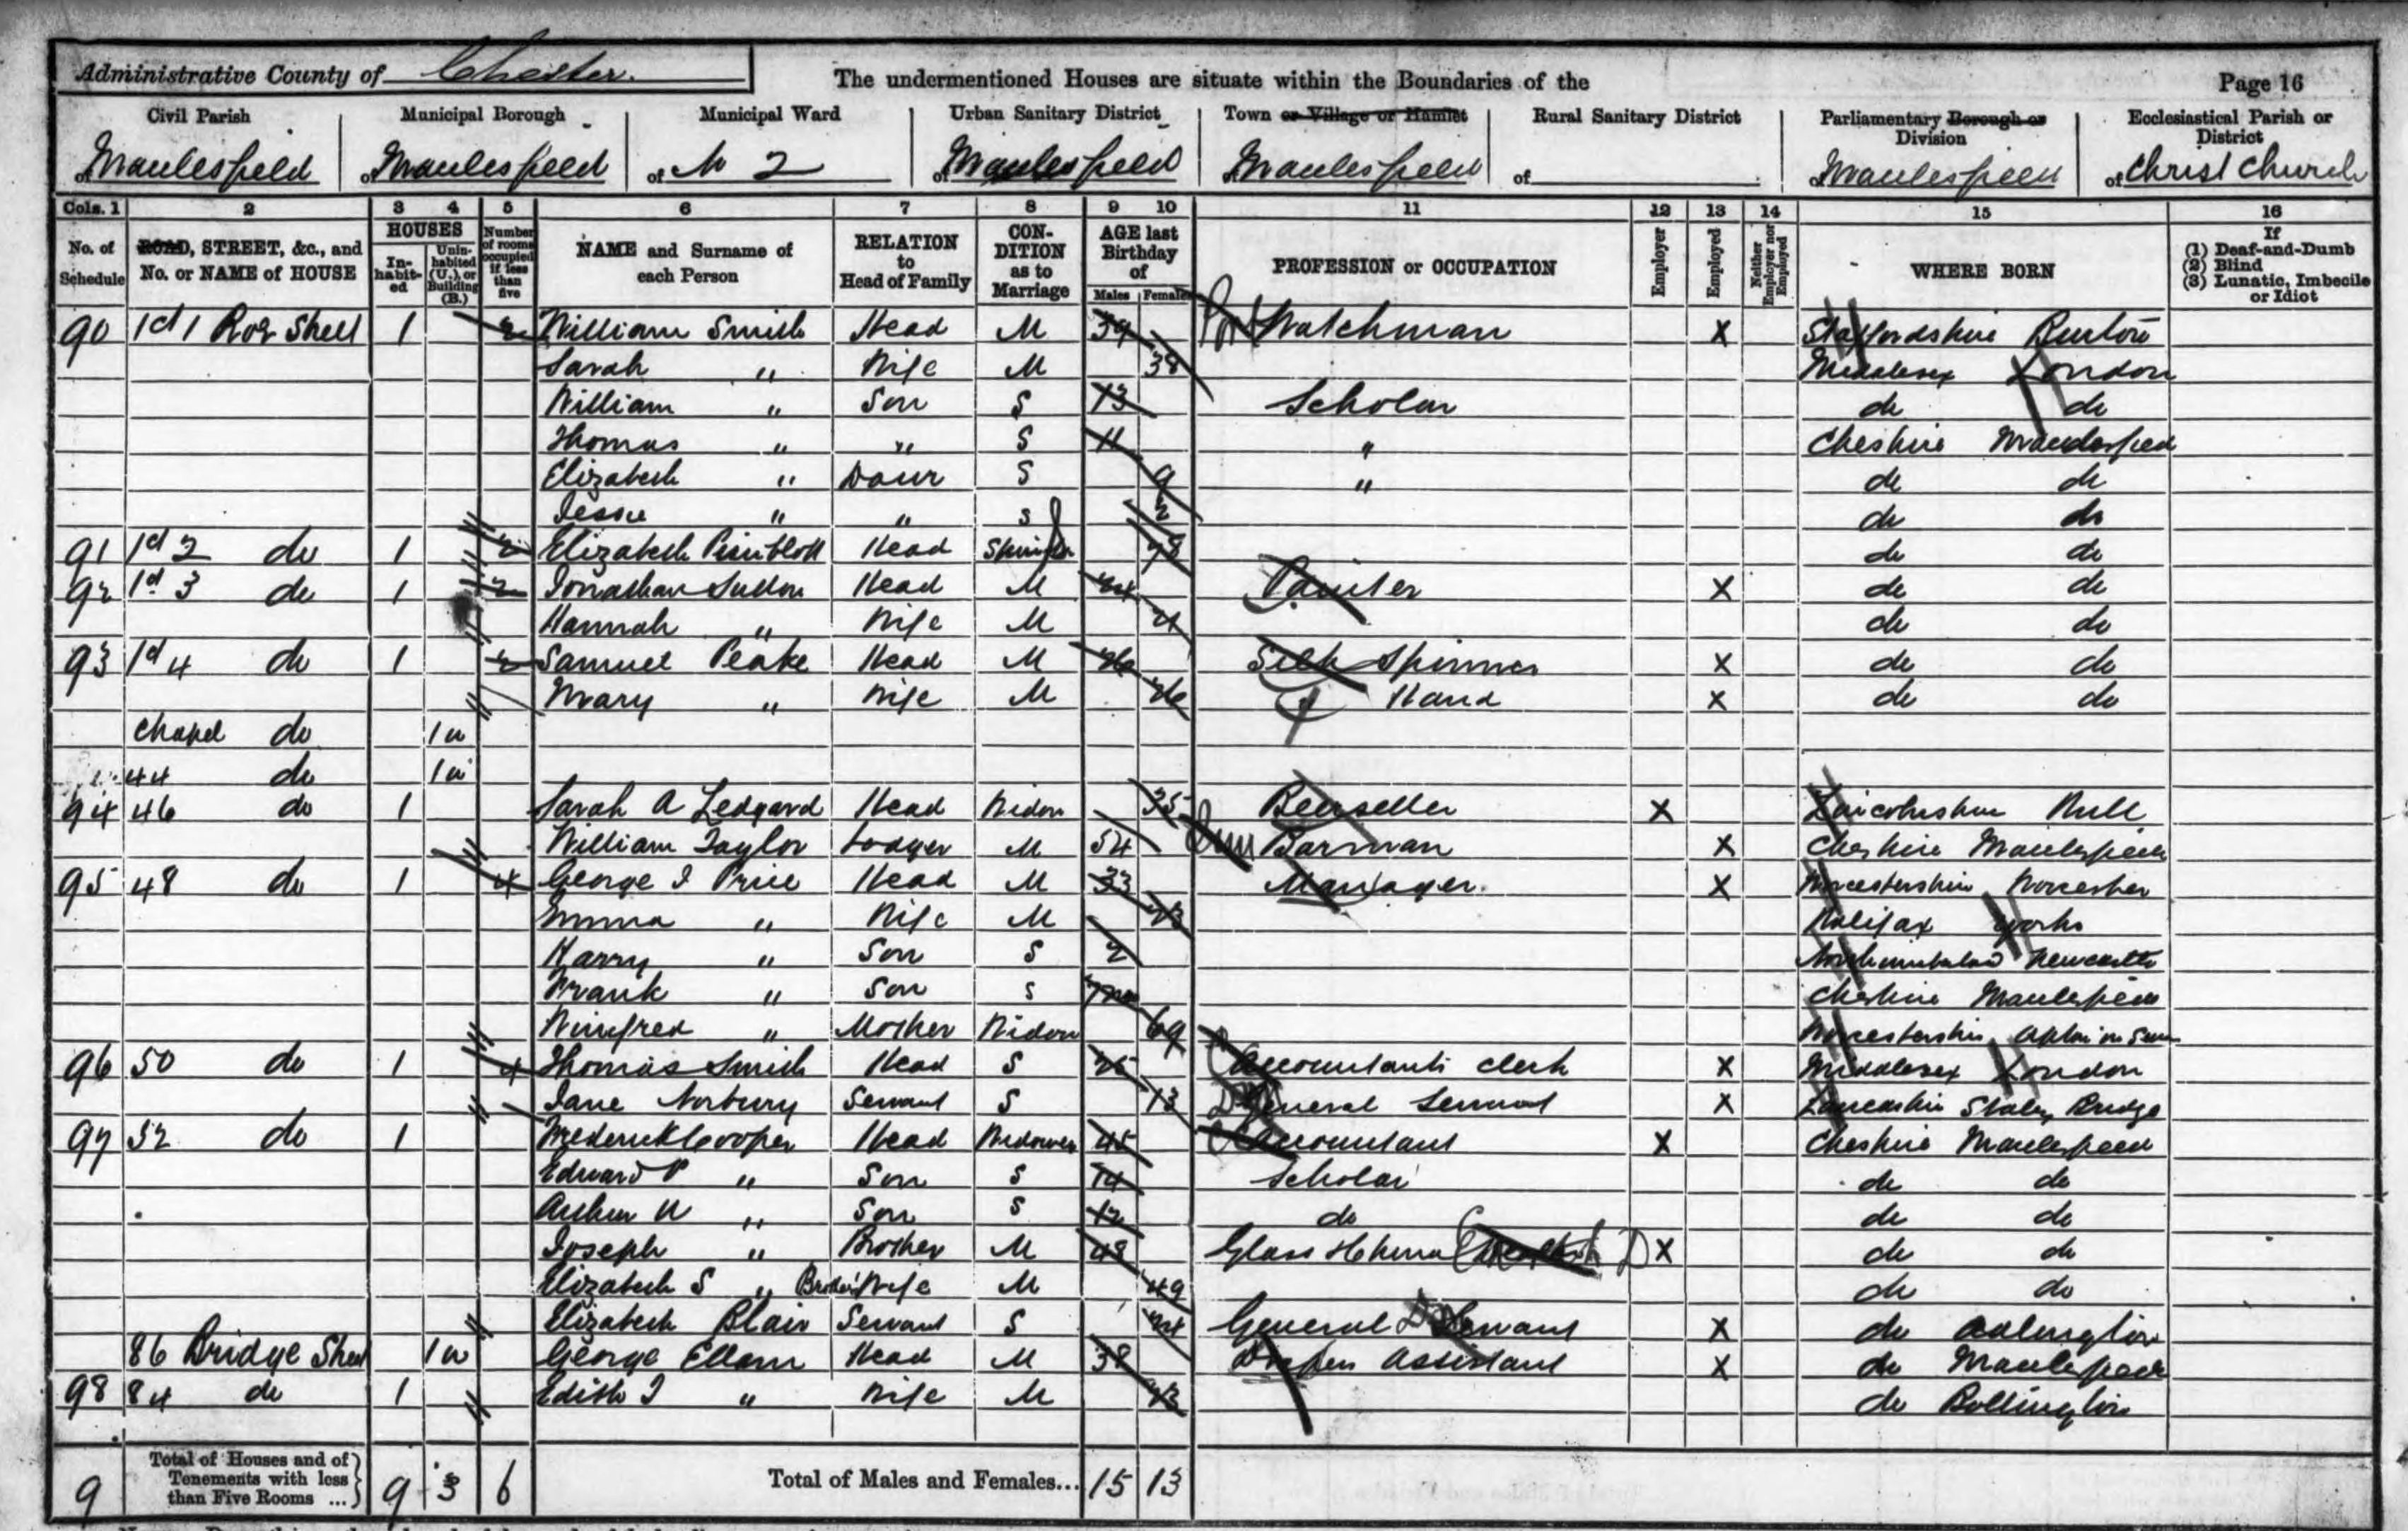 Administrative County of Chester. The undermentioned Houses are situate within the Boundaries of the Page 16
Civil Parish Municipal Borough Municipal Ward Urban Sanitary District Town or Village or Hamlet Rural Sanitary District Parliamentary Borough or Division Ecclesiastical Parish or District
of Macclesfield of Macclesfield of No 2 of Macclesfield Macclesfield of of Macclesfield of Christ Church
Cols. 1 2 3 4 5 6 7 8 9 10 11 12 13 14 15 16
No. of Schedule ROAD, STREET, &c., and No. or NAME of HOUSE HOUSES Inhabited Uninhabited (U.), or Building (B.) Number of rooms occupied if less than five NAME and Surname of each Person RELATION to Head of Family CONDITION as to Marriage AGE last Birthday of Males Females PROFESSION or OCCUPATION Employer Employed Neither Employer nor Employed WHERE BORN If (1) Deaf-and-Dumb (2) Blind (3) Lunatic, Imbecile or Idiot
90 1 ct 1 Roe Street 1 2 William Smith Head M 39 Watchman X Staffordshire Burton
Sarah " Wife M 38 Middlesex London
William " Son S 13 Scholar do do
Thomas " " S 11 " Cheshire Macclesfield
Elizabeth " Daur S 9 " do do
Jessie " " S 2 do do
91 1 ct 2 do 1 2 Elizabeth Head do do
92 1 ct 3 do 1 2 Jonathan Sutton Head M 24 Painter X do do
Hannah " Wife M 21 do do
93 1 ct 4 do 1 2 Samuel Peake Head M 26 Silk Spinner X do do
Mary " Wife M 26 " Hand X do do
Chapel do 1 u
44 do 1 u
94 46 do 1 Sarah A Ledgard Head Widow 35 Beerseller X Lincolnshire Hull
William Taylor Lodger M 54 Barman X Cheshire Macclesfield
95 48 do 1 4 George J Price Head M 33 Manager X Worcestershire Worcester
Emma " Wife M 23 Halifax Yorks
Harry " Son S 2 Northumberland Newcastle
Frank " Son S Cheshire Macclesfield
Winifred " Mother Widow 69 Worcestershire
96 50 do 1 4 Thomas Smith Head S 25 Accountants Clerk X Middlesex London
Jane Norbury Servant S 13 General Servant X Lancashire Staley Bridge
97 52 do 1 Frederick Cooper Head Widower 45 Accountant X Cheshire Macclesfield
Edward P " Son S 14 Scholar do do
Arthur W " Son S 12 do do do
Joseph " Brother M 48 Glass & China D X do do
Elizabeth S " Brother's Wife M 49 do do
Elizabeth Blair Servant S 24 General Servant X do Adlington
86 Bridge Street 1 u George Ellam Head M 38 Drapers Assistant X do Macclesfield
98 84 do 1 Edith J " Wife M 43 do Bollington
9 Total of Houses and of Tenements with less than Five Rooms ... 9 3 6 Total of Males and Females... 15 13